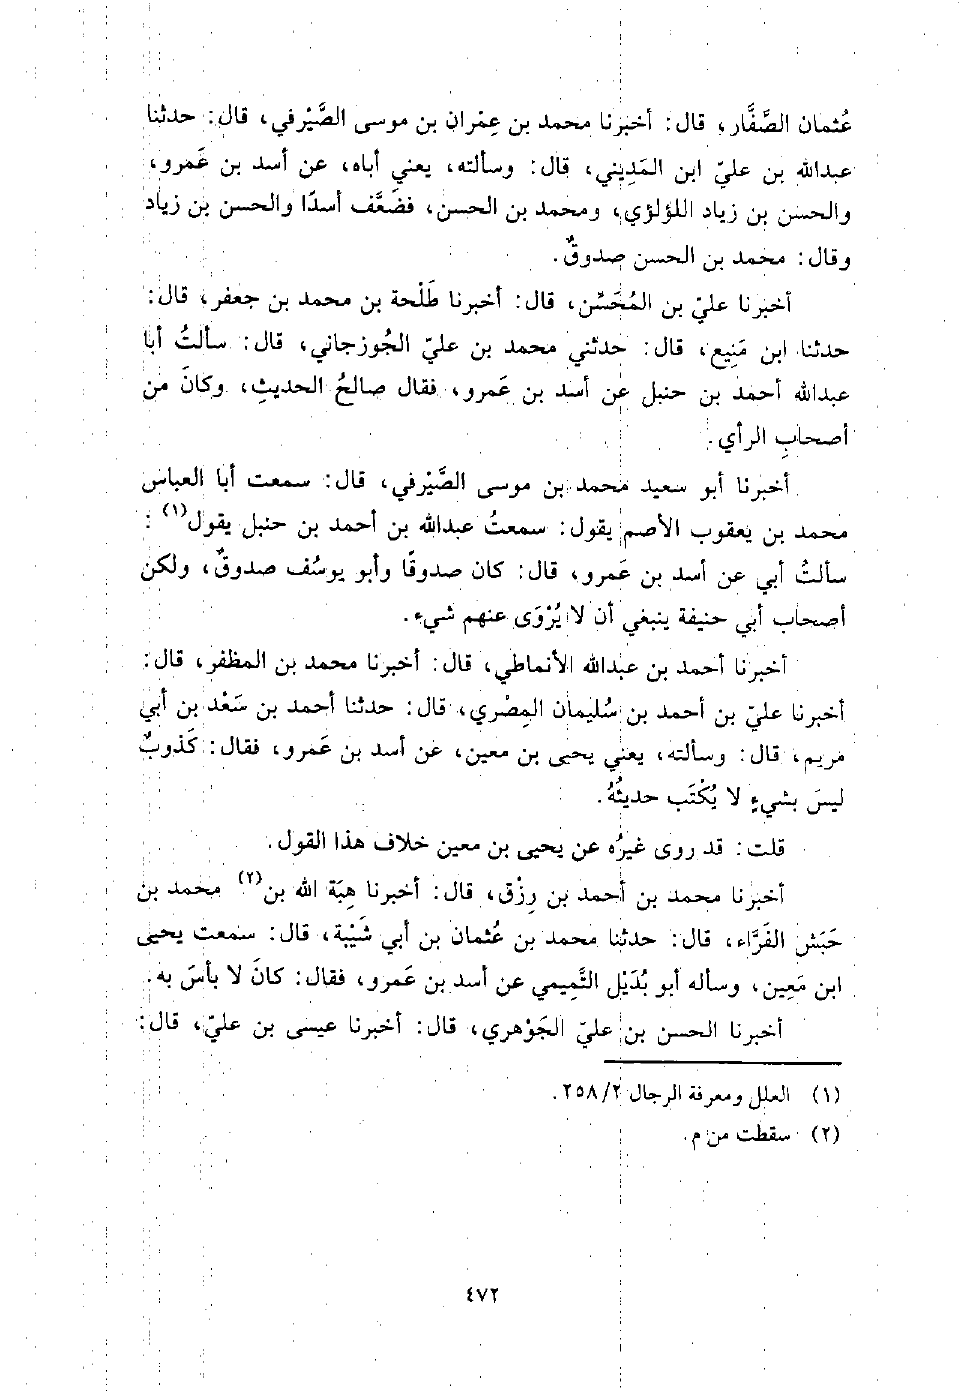 عُثمان الصَّفَّار، قال: أخبرنا محمد بن عِمْران بن موسى الصَّيْرفي، قال: حدثنا
عبدالله بن عليّ ابن المَدِيني، قال: وسألته، يعني أباه، عن أسد بن عَمرو،
والحسن بن زياد اللؤلؤي، ومحمد بن الحسن، فضَعَّف أسدًا والحسن بن زياد
وقال: محمد بن الحسن صدوقٌ.
أخبرنا عليّ بن المُحَسِّن، قال: أخبرنا طَلْحة بن محمد بن جعفر، قال:
حدثنا ابن مَنِيع، قال: حدثني محمد بن عليّ الجُوزجاني، قال: سألتُ أبا
عبدالله أحمد بن حنبل عن أسد بن عَمرو، فقال صالحُ الحديثِ، وكانَ من
أصحابِ الرأي.
أخبرنا أبو سعيد محمد بن موسى الصَّيْرفي، قال: سمعت أبا العباس
محمد بن يعقوب الأصم يقول: سمعتُ عبدالله بن أحمد بن حنبل يقول(١):
سألتُ أبي عن أسد بن عَمرو، قال: كان صدوقًا وأبو يوسُف صدوقٌ، ولكن
أصحاب أبي حنيفة ينبغي أن لا يُرْوَى عنهم شيء.
أخبرنا أحمد بن عبدالله الأنماطي، قال: أخبرنا محمد بن المظفر، قال:
أخبرنا عليّ بن أحمد بن سُليمان المِصْري، قال: حدثنا أحمد بن سَعْد بن أبي
مريم، قال: وسألته، يعني يحيى بن معين، عن أسد بن عَمرو، فقال: كَذوبٌ
ليسَ بشيءٍ لا يُكْتَب حديثُهُ.
قلت: قد روى غيرُه عن يحيى بن معين خلاف هذا القول.
أخبرنا محمد بن أحمد بن رِزْق، قال: أخبرنا هِبَة الله بن(٢) محمد بن
حَبَش الفَرَّاء، قال: حدثنا محمد بن عُثمان بن أبي شَيْبة، قال: سمعت يحيى
ابن مَعِين، وسأله أبو بُدَيْل التَّمِيمي عن أسد بن عَمرو، فقال: كانَ لا بأسَ به.
أخبرنا الحسن بن عليّ الجَوْهري، قال: أخبرنا عيسى بن عليّ، قال:
(١) العلل ومعرفة الرجال ٢/ ٢٥٨.
(٢) سقطت من م.
٤٧٢